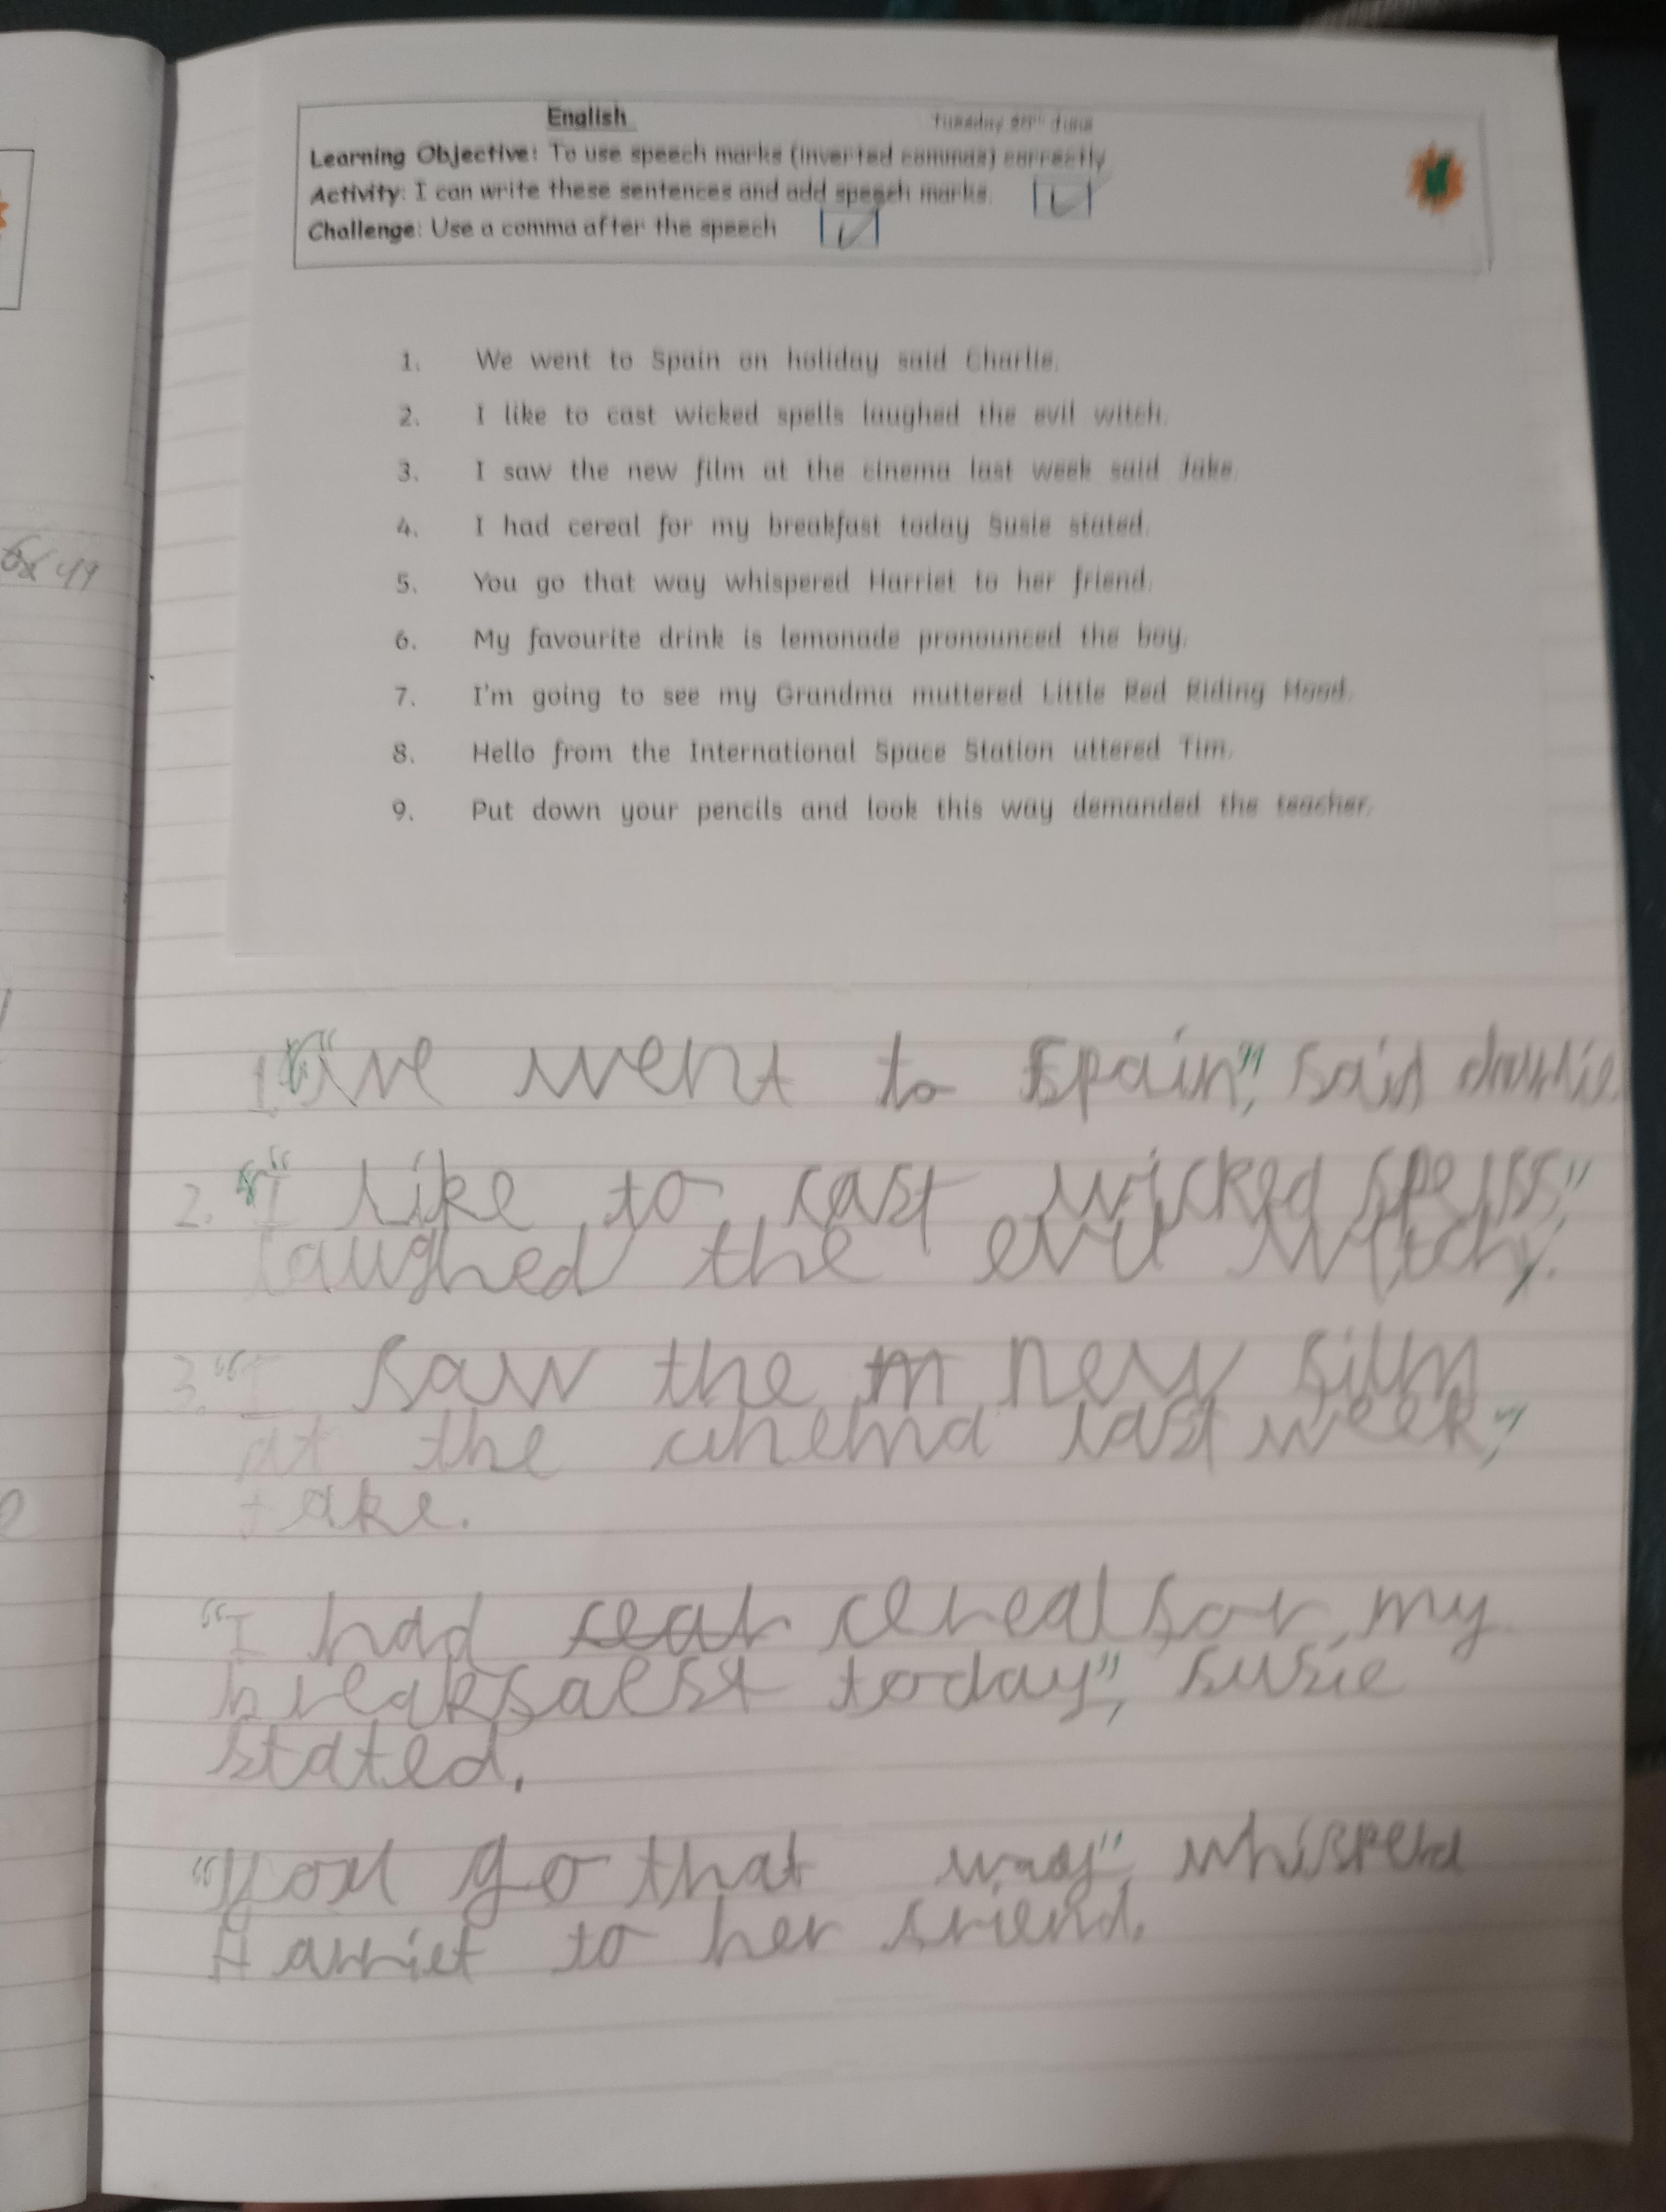 English Tuesday 20th June
Learning Objective: To use speech marks (inverted commas) correctly
Activity: I can write these sentences and add speech marks.
Challenge: Use a comma after the speech
1. We went to Spain on holiday said Charlie.
2. I like to cast wicked spells laughed the evil witch.
3. I saw the new film at the cinema last week said Jake.
4. I had cereal for my breakfast today Susie stated.
5. You go that way whispered Harriet to her friend.
6. My favourite drink is lemonade pronounced the boy.
7. I'm going to see my Grandma muttered Little Red Riding Hood.
8. Hello from the International Space Station uttered Tim.
9. Put down your pencils and look this way demanded the teacher.
1. "We went to Spain", said
2. "I like to cast wicked
laughed the evil witch.
3. "I saw the new film
at the cinema last week,"
Jake.
"I had cereal for my
today", Susie
stated.
"You go that way", whisperd
Harriet to her friend.